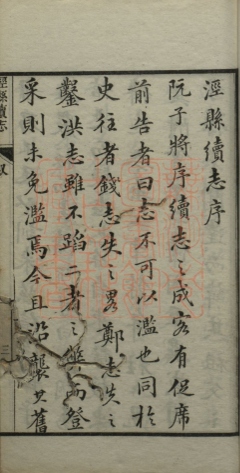 涇縣續志序
阮子將序續志之成客有促席
前告者曰志不可以濫也同於
史往者錢志失之畧鄭志失之
鑿洪志雖不蹈二者之弊而登
采則未免濫焉今且沿襲其舊
涇縣續志